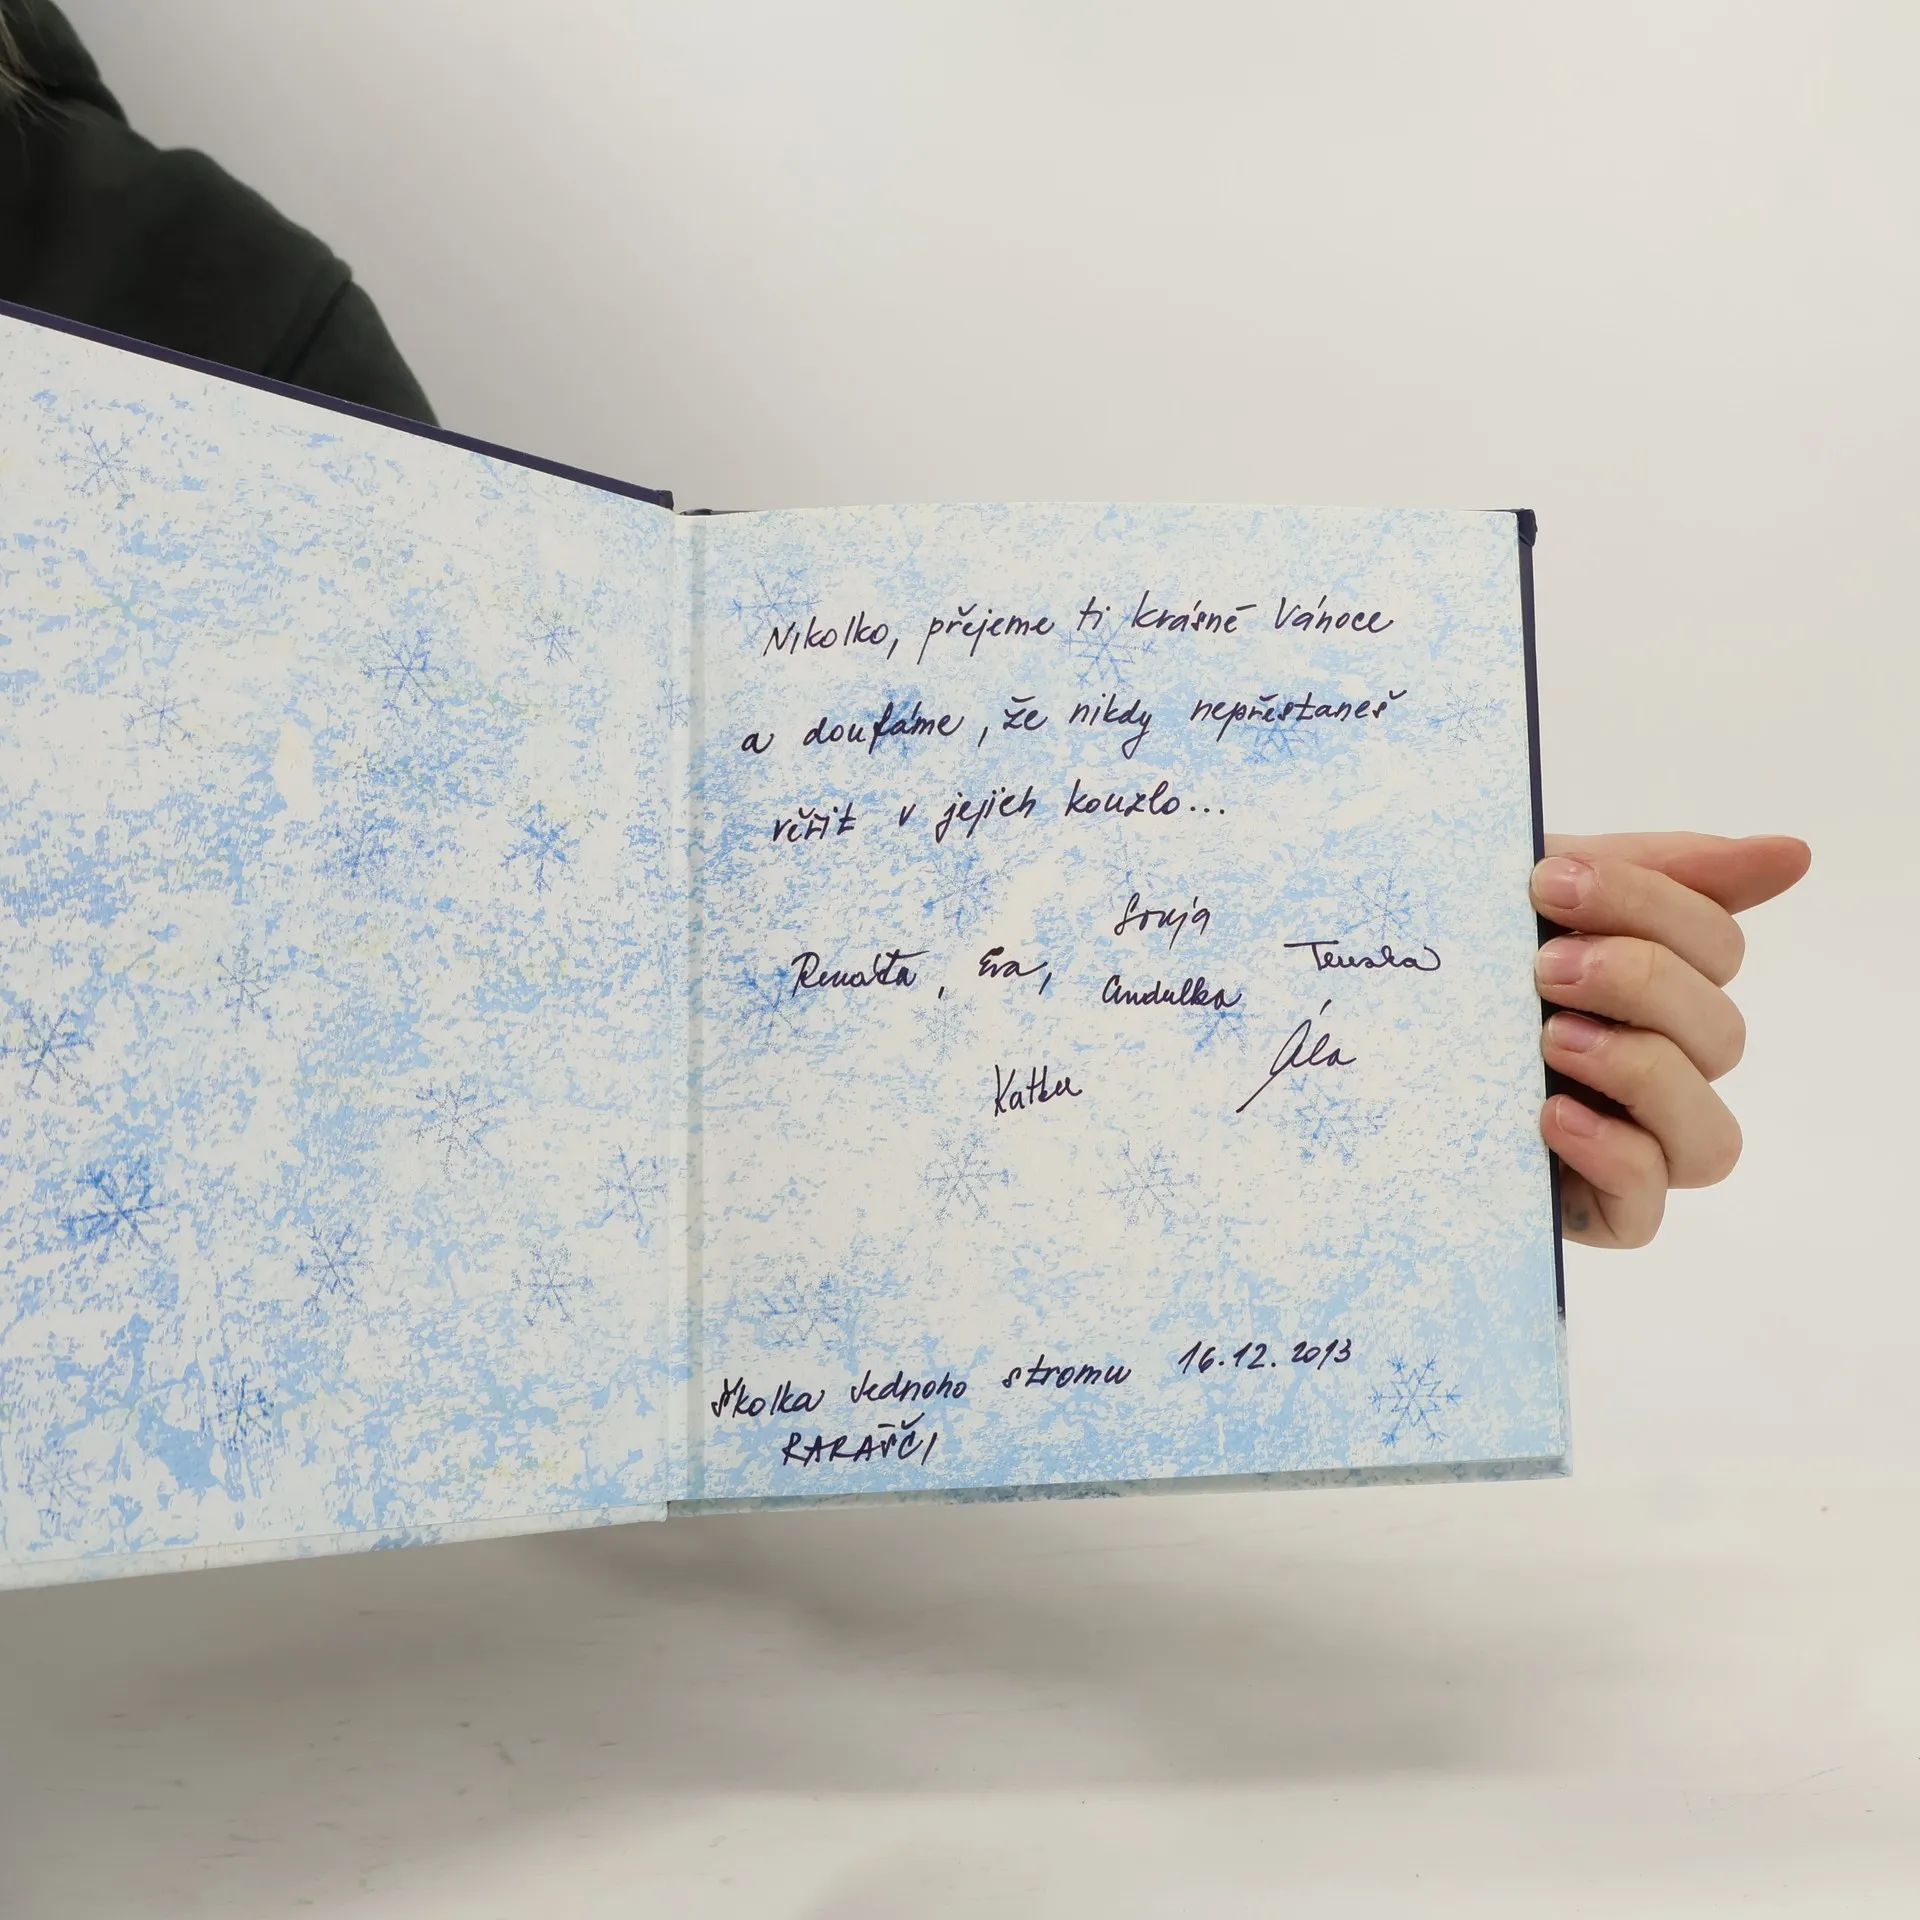 Nikolko, přejeme ti krásné Vánoce
a doufáme, že nikdy nepřestaneš
věřit v jejich kouzlo...
Sonja
Renáta, Eva, Andulka Terezka
Katka Ála
Školka Jednoho stromu 16.12.2013
RARAŠČI